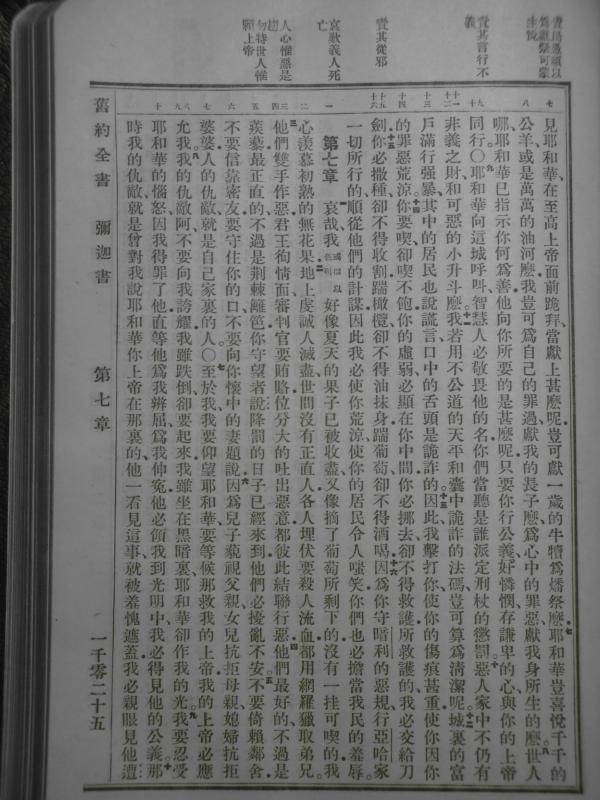 責其從邪
責其言行不義
哀歎義人死亡
人心惟惡是趨
勿恃世人惟賴上帝
見耶和華在至高上帝面前跪拜當獻上甚麽呢豈可獻一歲的牛犢爲燔祭麽耶和華豈喜悅千千的
公羊或是萬萬的油河麽我豈可爲自己的罪過獻我的長子麽爲心中的罪惡獻我身所生的麽世人
哪耶和華已指示你何爲善他向你所要的是甚麽呢只要你行公義好憐憫存謙卑的心與你的上帝
同行〇耶和華向這城呼叫智慧人必敬畏他的名你們當聽是誰派定刑杖的懲罰惡人家中不仍有
非義之財和可惡的小升斗麽我若用不公道的天平和囊中詭詐的法碼豈可算爲清潔呢城裏的富
戶滿行強暴其中的居民也說謊言口中的舌頭是詭詐的因此我擊打你使你的傷痕甚重使你因你
的罪惡荒涼你要喫卻喫不飽你的虛弱必顯在你中間你必挪去卻不得救護所救護的我必交給刀
劍你必撒種卻不得收割踹橄欖卻不得油抹身踹葡萄卻不得酒喝因爲你守暗利的惡規行亞哈家
一切所行的順從他們的計謀因此我必使你荒涼使你的居民令人嗤笑你們也必擔當我民的羞辱
第七章 哀哉我好像夏天的果子已被收盡又像摘了葡萄所剩下的沒有一挂可喫的我
心羨慕初熟的無花果地上虔誠人滅盡世間沒有正直人各人埋伏要殺人流血都用網羅獵取弟兄
他們雙手作惡君王徇情面審判官要賄賂位分大的吐出惡意都彼此結聯行惡他們最好的不過是
蒺藜最正直的不過是荊棘籬笆你守望者說降罰的日子已經來到他們必擾亂不安不要倚賴鄰舍
不要信靠密友要守住你的口不要向你懷中的妻題說因爲兒子藐視父親女兒抗拒母親媳婦抗拒
婆婆人的仇敵就是自己家裏的人〇至於我我要仰望耶和華要等候那救我的上帝我的上帝必應
允我我的仇敵阿不要向我誇耀我雖跌倒卻要起來我雖坐在黑暗裏耶和華卻作我的光我要忍受
耶和華的惱怒因我得罪了他直等他爲我辨屈爲我伸冤他必領我到光明中我必得見他的公義那
時我的仇敵就是曾對我說耶和華你上帝在那裏的他一看見這事就被羞愧遮蓋我必親眼見他遭
舊約全書 彌迦書 第七章 一千零二十五